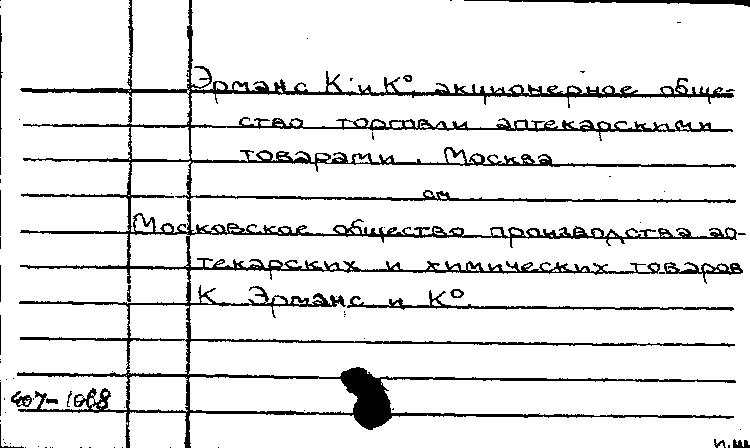 Эрманс К. и К°, акционерное обще-
ство торговли аптекарскими
товарами. Москва
см
Московское общество производства ап-
текарских и химических товаров
К. Эрманс и К°.
407-1088